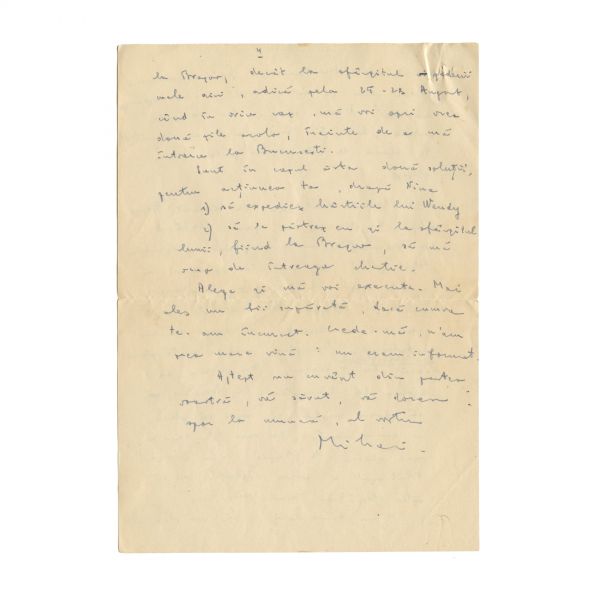 la Brașov, decât la sfârșitul șederii
mele aici, adică pela 25-28 August,
când în orice caz, mă voi opri vreo
două zile acolo, înainte de a mă
întoarce la București.
Sunt în cazul ăsta două soluții,
pentru acțiunea ta, dragă Nina
1) să expediez hârtiile lui Wendy
2) să le păstrez eu și la sfârșitul
lunii, fiind la Brașov, să mă
ocup de întreaga chestie.
Alege și mă voi executa. Mai
ales nu fii supărată, dacă cumva
te-am încurcat. Crede-mă, n'am
prea mare vină: nu eram informat.
Aștept un cuvânt din partea
voastră, vă sărut, vă doresc
spor la muncă, al vostru
Mihai.